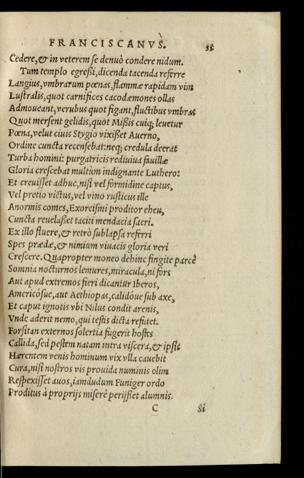 FRANCISCANVS. 33
Cedere, & in veterem se denuò condere nidum.
Tum templo egressi, dicenda tacenda referre
Langius, vmbrarum pœnas, flammæ rapidam vim
Lustralis, quot carnifices cacodæmones ollas
Admoueant, verubus quot figant, fluctibus vmbras
Quot mersent gelidis, quot Missis cuiq; leuetur
Pœna, velut ciuis Stygio vixisset Auerno,
Ordine cuncta recensebat: neq; credula deerat
Turba homini: purgatricis rediuiua fauillæ
Gloria crescebat multùm indignante Luthero:
Et creuisset adhuc, nisi vel formidine captus,
Vel pretio victus, vel vino rusticus ille
Anormis comtes, Exorcismi proditor eheu,
Cuncta reuelasset taciti mendacia sacri.
Ex illo fluere, & retrò sublapsa referri
Spes prædæ, & nimium viuacis gloria veri
Crescere. Quapropter moneo dehinc fingite parcè
Somnia nocturnos lemures, miracula, ni fors
Aut apud extremos fieri dicantur Iberos,
Americósue, aut Aethiopas, calidóue sub axe,
Et caput ignotis vbi Nilus condit arenis,
Vnde aderit nemo, qui testis dicta refutet.
Forsitan externos solertia fugerit hostes
Callida, sed pestem natam intra viscera, & ipsis
Hærentem venis hominum vix vlla cauebit
Cura, nisi nostros vis prouida numinis olim
Respexisset auos, iamdudum Funiger ordo
Proditus à proprijs miserè perijsset alumnis.
C Si